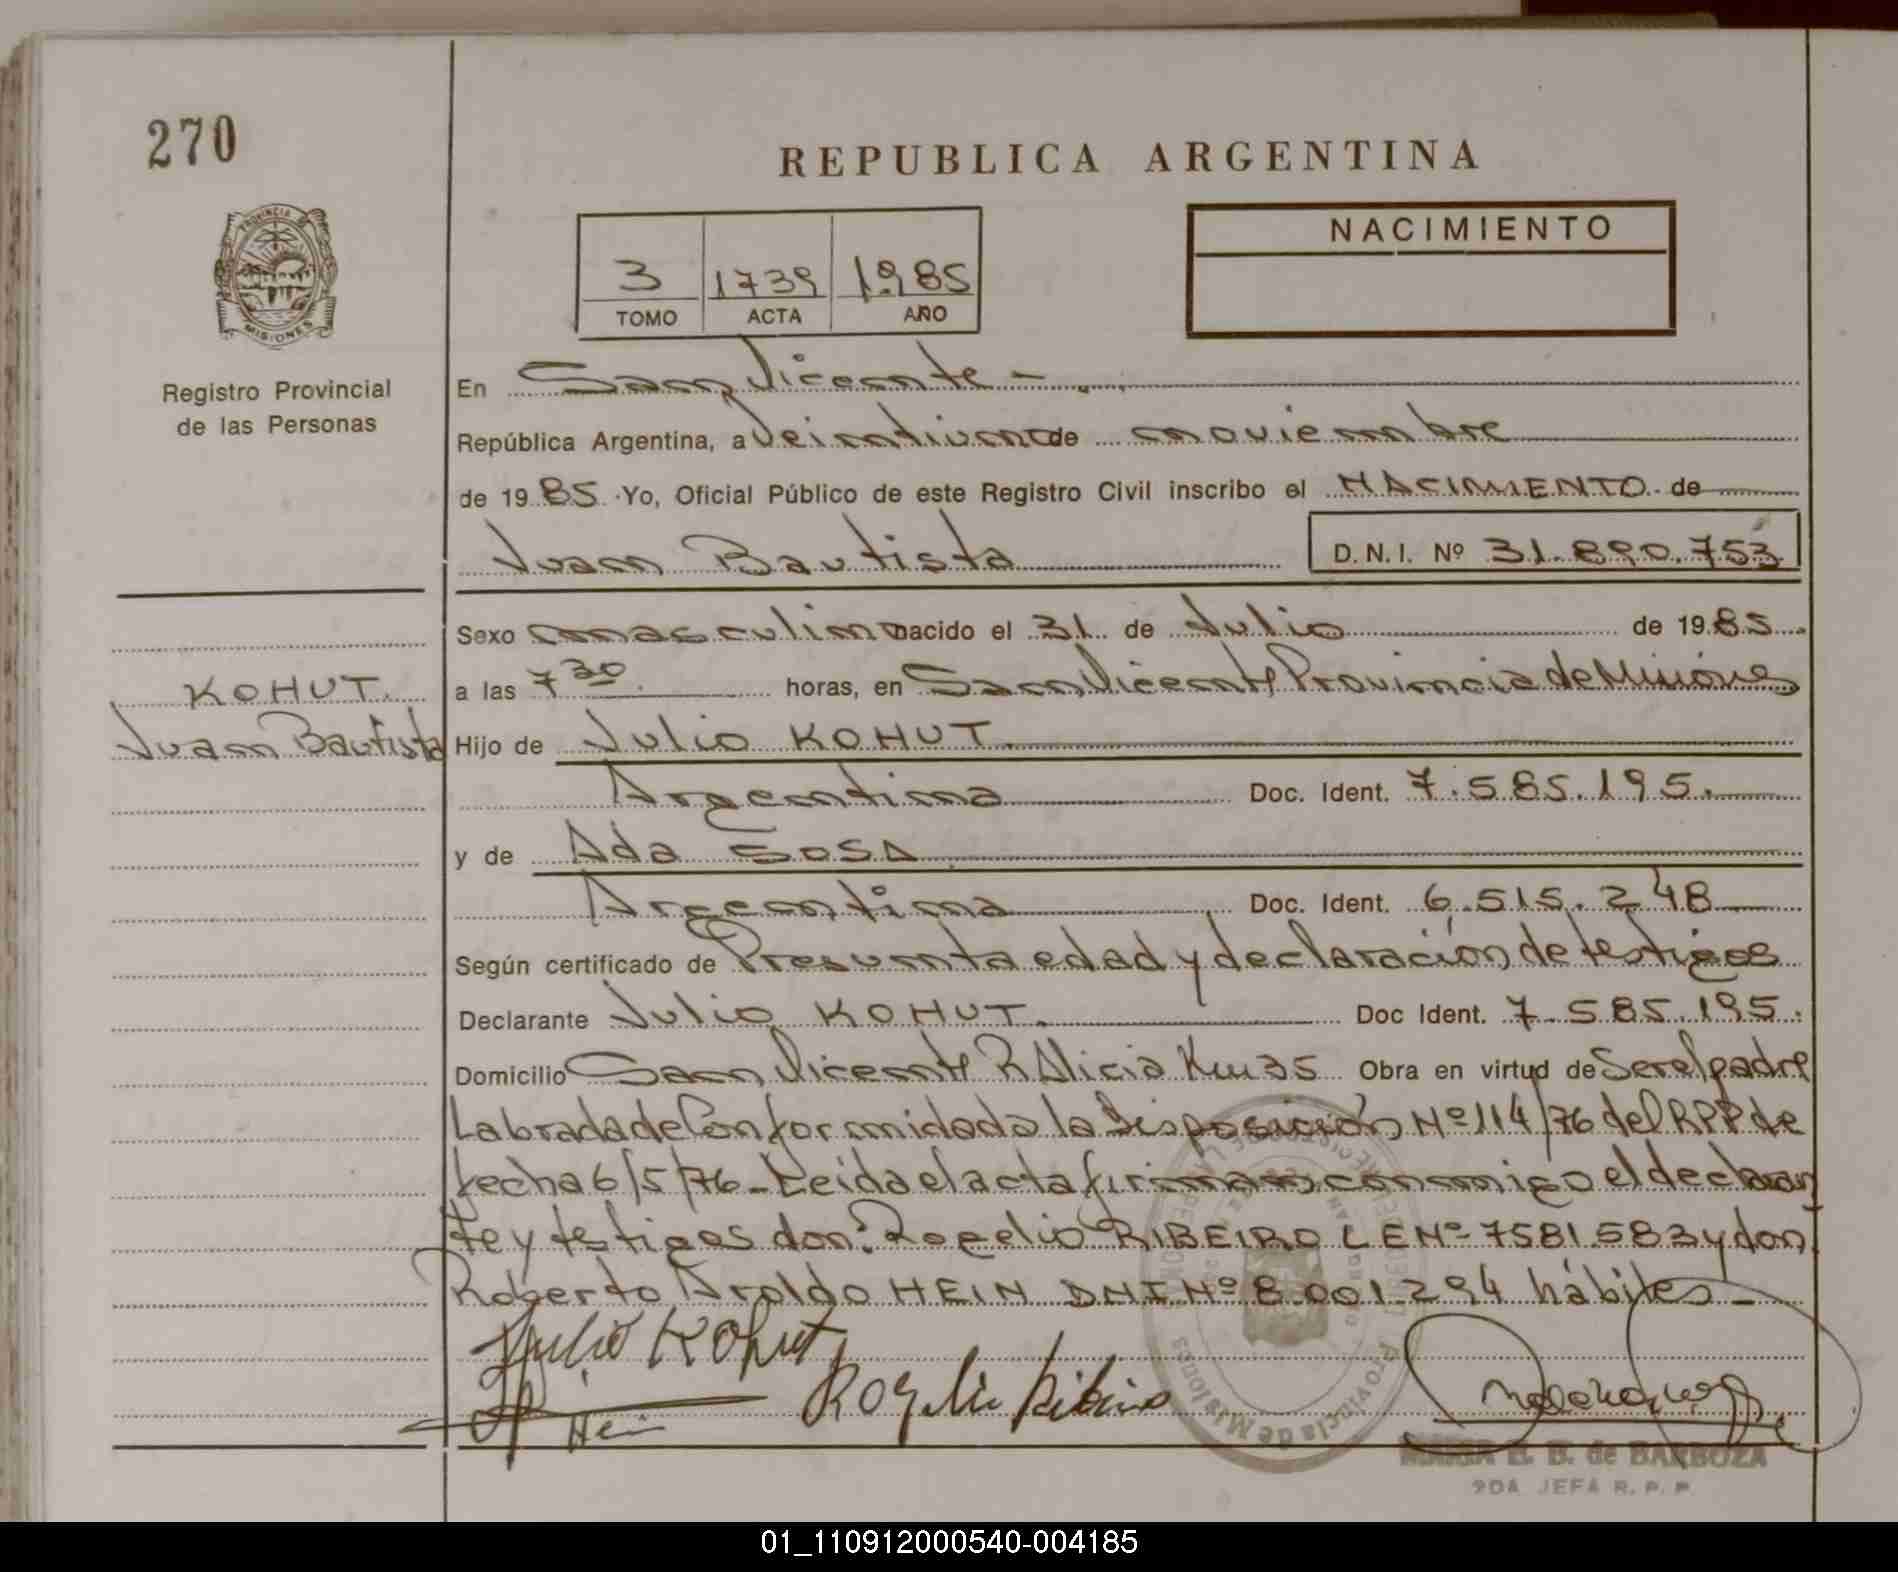 270
REPUBLICA ARGENTINA
PROVINCIA DE
MISIONES
3 1739 1985
TOMO ACTA AÑO
NACIMIENTO
Registro Provincial
de las Personas
En San Vicente -
República Argentina, a Veintiuno de noviembre
de 1985 Yo, Oficial Público de este Registro Civil inscribo el NACIMIENTO de
Juan Bautista D.N.I. Nº 31.890.753
Sexo masculino nacido el 31 de Julio de 1985
KOHUT
Juan Bautista
a las 7 30 horas, en San Vicente Provincia de Misiones
Hijo de Julio KOHUT
Argentina Doc. Ident. 7.585.195.
y de Ada SOSA
Argentina Doc. Ident. 6.515.248
Según certificado de Presunta edad y declaración de testigos
Declarante Julio KOHUT. Doc Ident. 7.585.195.
Domicilio San Vicente R Alicia Km 35 Obra en virtud de Ser el padre
Labrada de Conformidad a la Disposición Nº 114/76 del RPP de
fecha 6/5/76 - Leída el acta firman conmigo el declaran
te y testigos don: Rogelio RIBEIRO LE Nº 7581.583 y don
Roberto Aroldo HEIN DNI Nº 8.001.294 hábiles -
Julio Kohut
Hein Rogelio Ribeiro
Provincia de Misiones
MARIA B. B. de BARBOZA
2DA JEFA R. P. P.
01_110912000540-004185